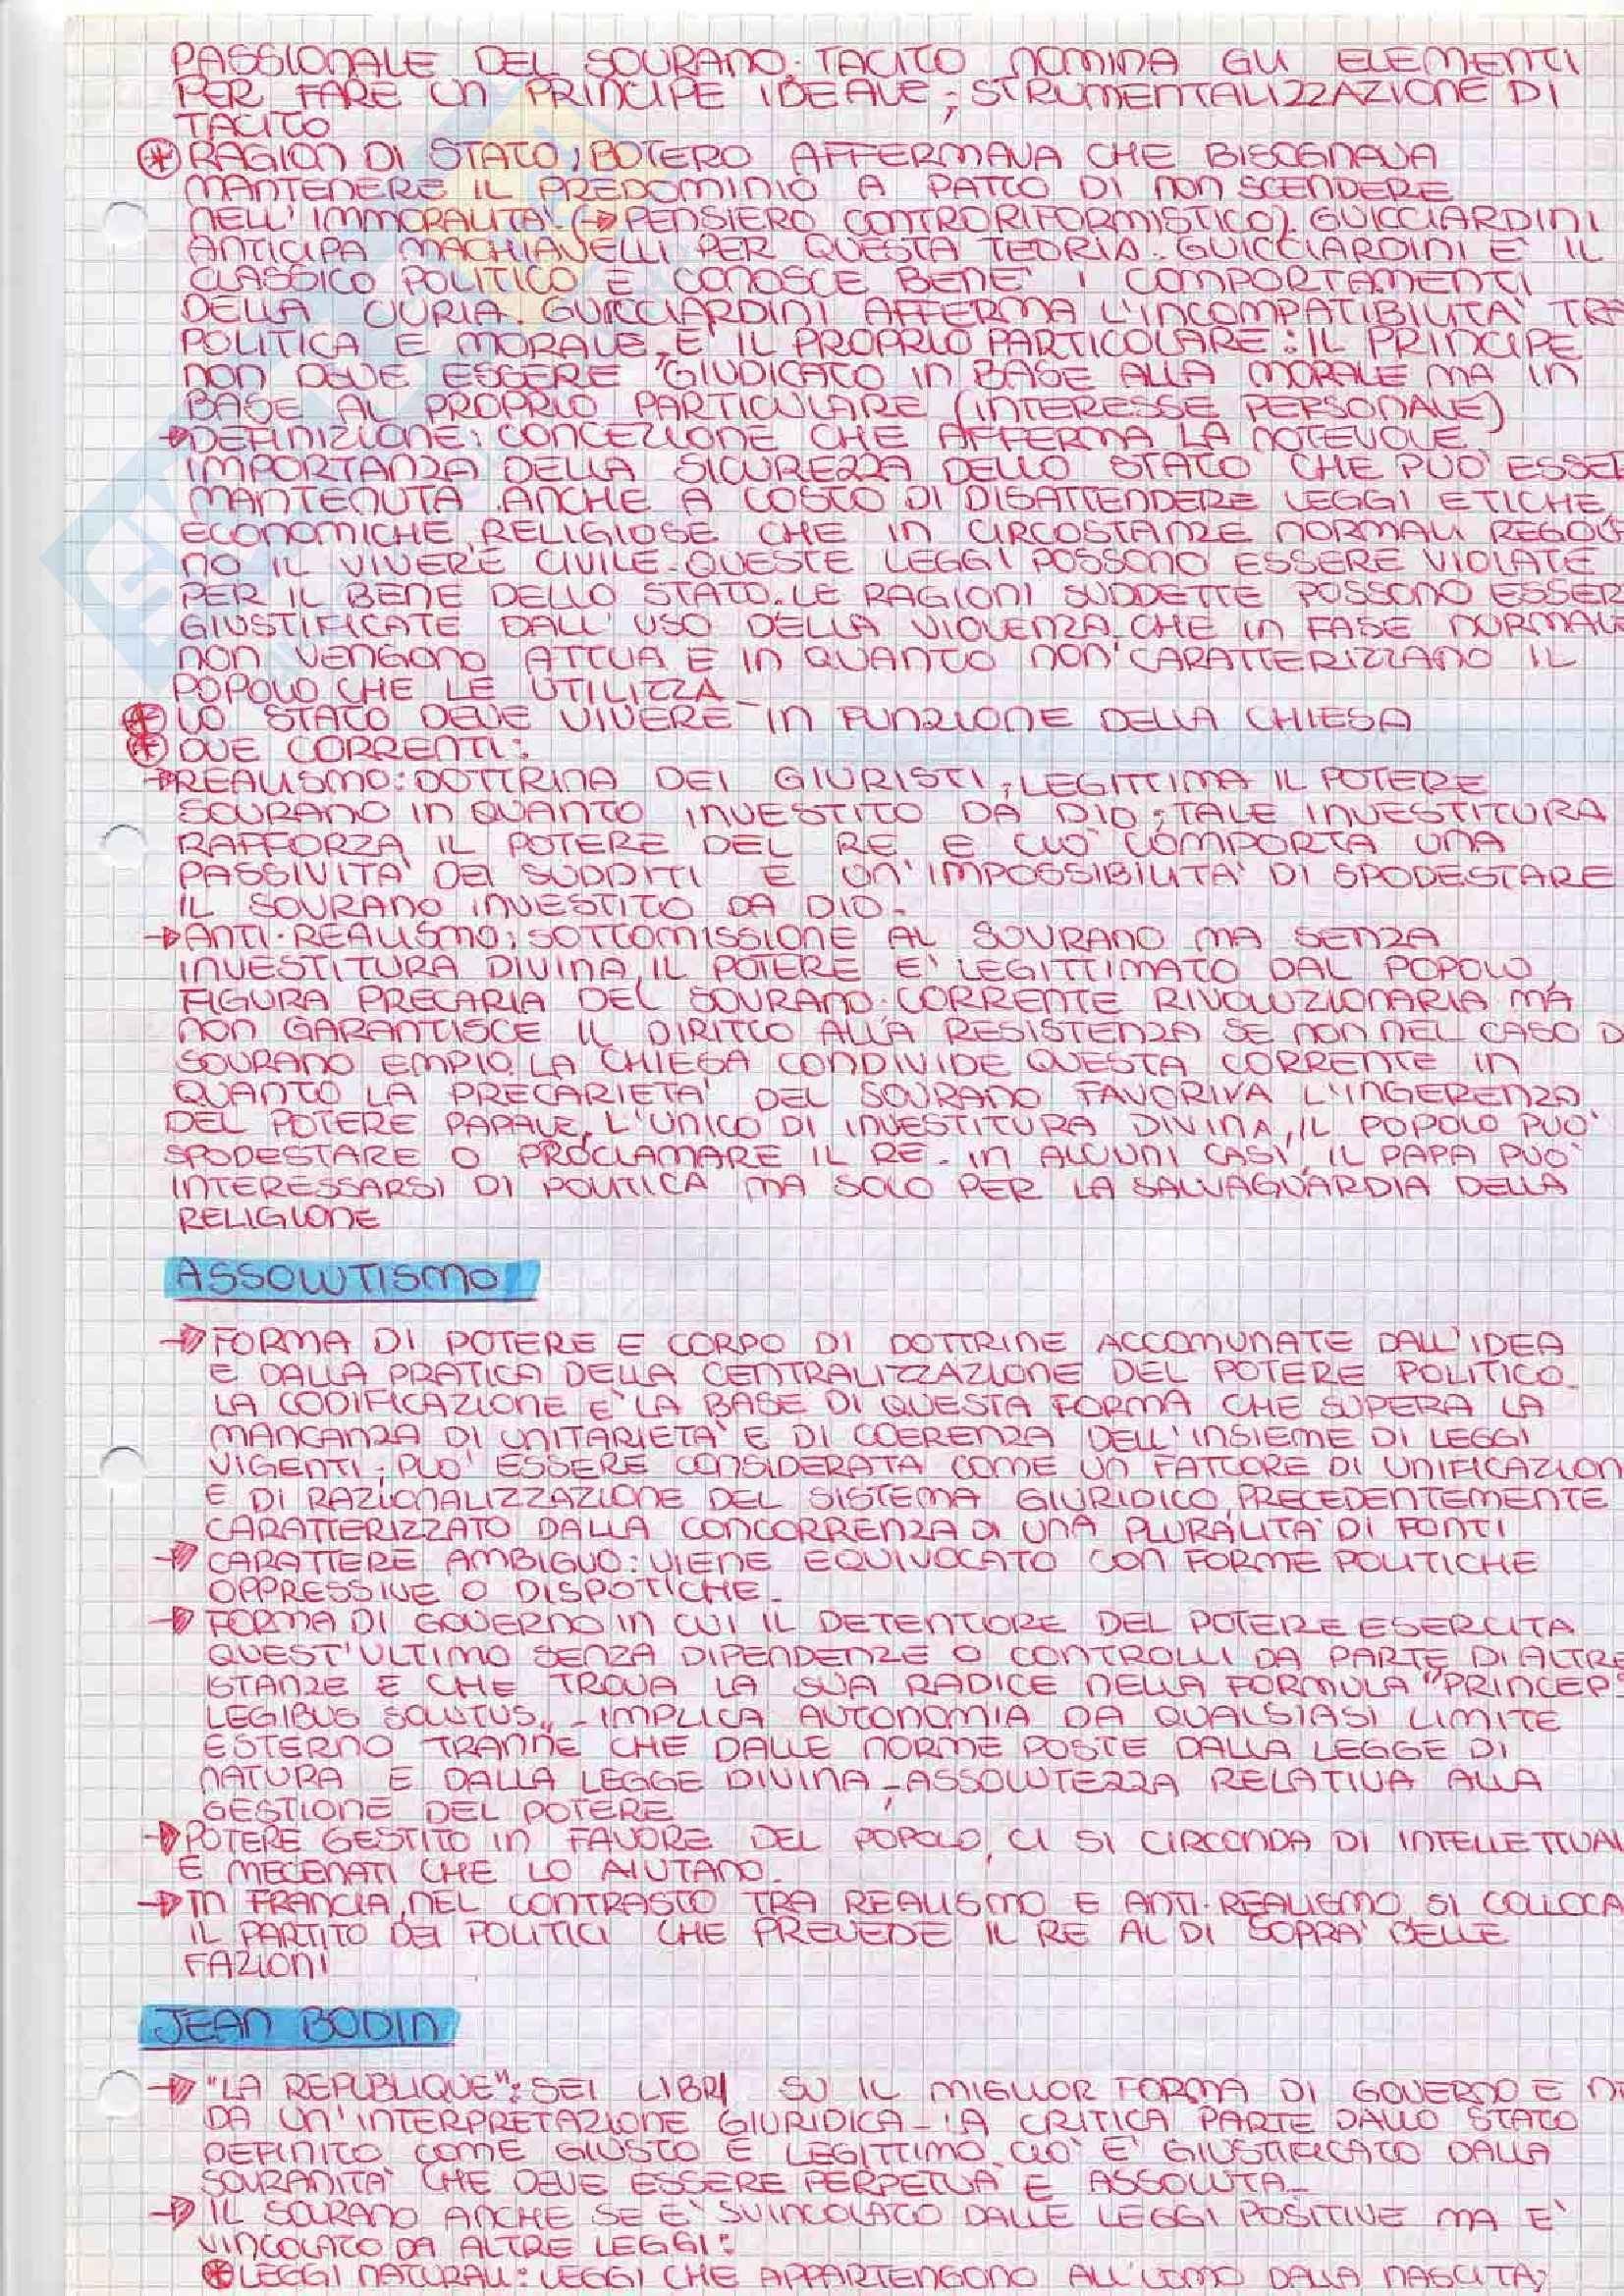 PASSIONALE DEL SOVRANO. TACITO NOMINA GLI ELEMENTI
PER FARE UN PRINCIPE IDEALE; STRUMENTALIZZAZIONE DI
TACITO
* RAGION DI STATO; BOTERO AFFERMAVA CHE BISOGNAVA
MANTENERE IL PREDOMINIO A PATTO DI NON SCENDERE
NELL'IMMORALITA' (→ PENSIERO CONTRORIFORMISTICO). GUICCIARDINI
ANTICIPA MACHIAVELLI PER QUESTA TEORIA. GUICCIARDINI E' IL
CLASSICO POLITICO E CONOSCE BENE I COMPORTAMENTI
DELLA CURIA. GUICCIARDINI AFFERMA L'INCOMPATIBILITA' TRA
POLITICA E MORALE, E IL PROPRIO PARTICOLARE: IL PRINCIPE
NON DEVE ESSERE GIUDICATO IN BASE ALLA MORALE MA IN
BASE AL PROPRIO PARTICULARE (INTERESSE PERSONALE)
→ DEFINIZIONE: CONCEZIONE CHE AFFERMA LA NOTEVOLE
IMPORTANZA DELLA SICUREZZA DELLO STATO CHE PUO' ESSER
MANTENUTA ANCHE A COSTO DI DISATTENDERE LEGGI ETICHE,
ECONOMICHE, RELIGIOSE CHE IN CIRCOSTANZE NORMALI REGOLA
NO IL VIVERE CIVILE. QUESTE LEGGI POSSONO ESSERE VIOLATE
PER IL BENE DELLO STATO. LE RAGIONI SUDDETTE POSSONO ESSER
GIUSTIFICATE DALL'USO DELLA VIOLENZA, CHE IN FASE NORMALE
NON VENGONO ATTUA E IN QUANTO NON CARATTERIZZANO IL
POPOLO CHE LE UTILIZZA
* LO STATO DEVE VIVERE IN FUNZIONE DELLA CHIESA
* DUE CORRENTI:
→ REALISMO: DOTTRINA DEI GIURISTI; LEGITTIMA IL POTERE
SOVRANO IN QUANTO INVESTITO DA DIO; TALE INVESTITURA
RAFFORZA IL POTERE DEL RE E CIO' COMPORTA UNA
PASSIVITA' DEI SUDDITI E UN'IMPOSSIBILITA' DI SPODESTARE
IL SOVRANO INVESTITO DA DIO.
→ ANTI-REALISMO: SOTTOMISSIONE AL SOVRANO MA SENZA
INVESTITURA DIVINA, IL POTERE E' LEGITTIMATO DAL POPOLO,
FIGURA PRECARIA DEL SOVRANO. CORRENTE RIVOLUZIONARIA MA
NON GARANTISCE IL DIRITTO ALLA RESISTENZA SE NON NEL CASO D
SOVRANO EMPIO. LA CHIESA CONDIVIDE QUESTA CORRENTE IN
QUANTO LA PRECARIETA' DEL SOVRANO FAVORIVA L'INGERENZA
DEL POTERE PAPALE, L'UNICO DI INVESTITURA DIVINA, IL POPOLO PUO'
SPODESTARE O PROCLAMARE IL RE. IN ALCUNI CASI, IL PAPA PUO'
INTERESSARSI DI POLITICA MA SOLO PER LA SALVAGUARDIA DELLA
RELIGIONE
ASSOLUTISMO
→ FORMA DI POTERE E CORPO DI DOTTRINE ACCOMUNATE DALL'IDEA
E DALLA PRATICA DELLA CENTRALIZZAZIONE DEL POTERE POLITICO.
LA CODIFICAZIONE E' LA BASE DI QUESTA FORMA CHE SUPERA LA
MANCANZA DI UNITARIETA' E DI COERENZA DELL'INSIEME DI LEGGI
VIGENTI; PUO' ESSERE CONSIDERATA COME UN FATTORE DI UNIFICAZION
E DI RAZIONALIZZAZIONE DEL SISTEMA GIURIDICO PRECEDENTEMENTE
CARATTERIZZATO DALLA CONCORRENZA DI UNA PLURALITA' DI FONTI
→ CARATTERE AMBIGUO: VIENE EQUIVOCATO CON FORME POLITICHE
OPPRESSIVE O DISPOTICHE.
→ FORMA DI GOVERNO IN CUI IL DETENTORE DEL POTERE ESERCITA
QUEST'ULTIMO SENZA DIPENDENZE O CONTROLLI DA PARTE DI ALTRE
ISTANZE E CHE TROVA LA SUA RADICE NELLA FORMULA "PRINCEPS
LEGIBUS SOLUTUS" - IMPLICA AUTONOMIA DA QUALSIASI LIMITE
ESTERNO TRANNE CHE DALLE NORME POSTE DALLA LEGGE DI
NATURA E DALLA LEGGE DIVINA - ASSOLUTEZZA RELATIVA ALLA
GESTIONE DEL POTERE
→ POTERE GESTITO IN FAVORE DEL POPOLO, CI SI CIRCONDA DI INTELLETTUAL
E MECENATI CHE LO AIUTANO.
→ IN FRANCIA, NEL CONTRASTO TRA REALISMO E ANTI-REALISMO SI COLLOCA
IL PARTITO DEI POLITICI CHE PREVEDE IL RE AL DI SOPRA DELLE
FAZIONI
JEAN BODIN
→ "LA REPUBLIQUE": SEI LIBRI SU IL MIGLIOR FORMA DI GOVERNO E N
DA UN'INTERPRETAZIONE GIURIDICA - LA CRITICA PARTE DALLO STATO
DEFINITO COME GIUSTO E LEGITTIMO, CIO' E' GIUSTIFICATO DALLA
SOVRANITA' CHE DEVE ESSERE PERPETUA E ASSOLUTA.
→ IL SOVRANO ANCHE SE E' SVINCOLATO DALLE LEGGI POSITIVE MA E'
VINCOLATO DA ALTRE LEGGI:
* LEGGI NATURALI: LEGGI CHE APPARTENGONO ALL'UOMO DALLA NASCITA;